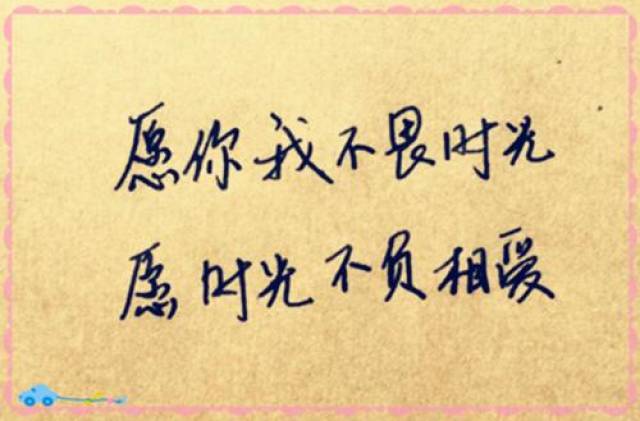 愿你我不畏时光
愿时光不负相爱